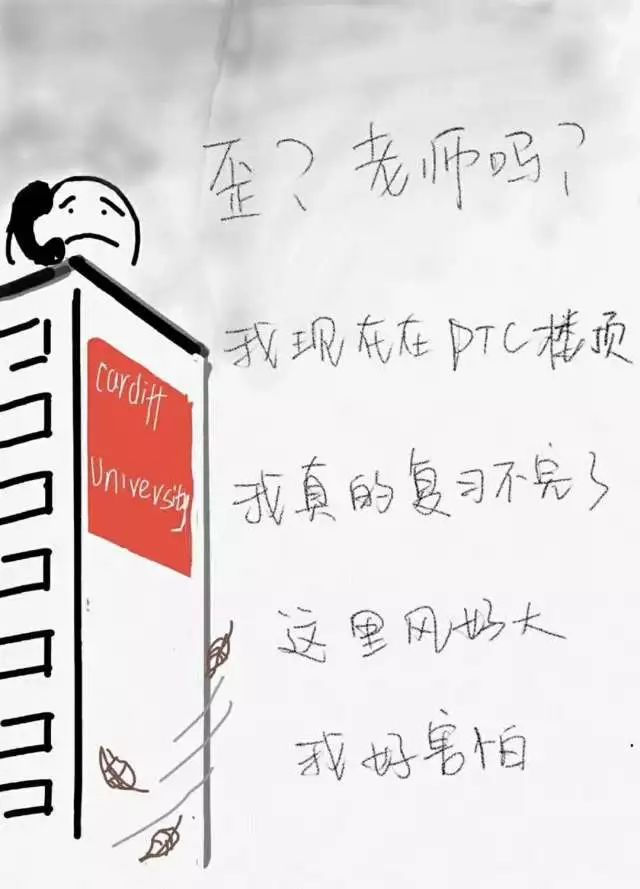 歪？老师吗？
我现在在PTC楼顶
Cardiff
University
我真的复习不完了
这里风好大
我好害怕